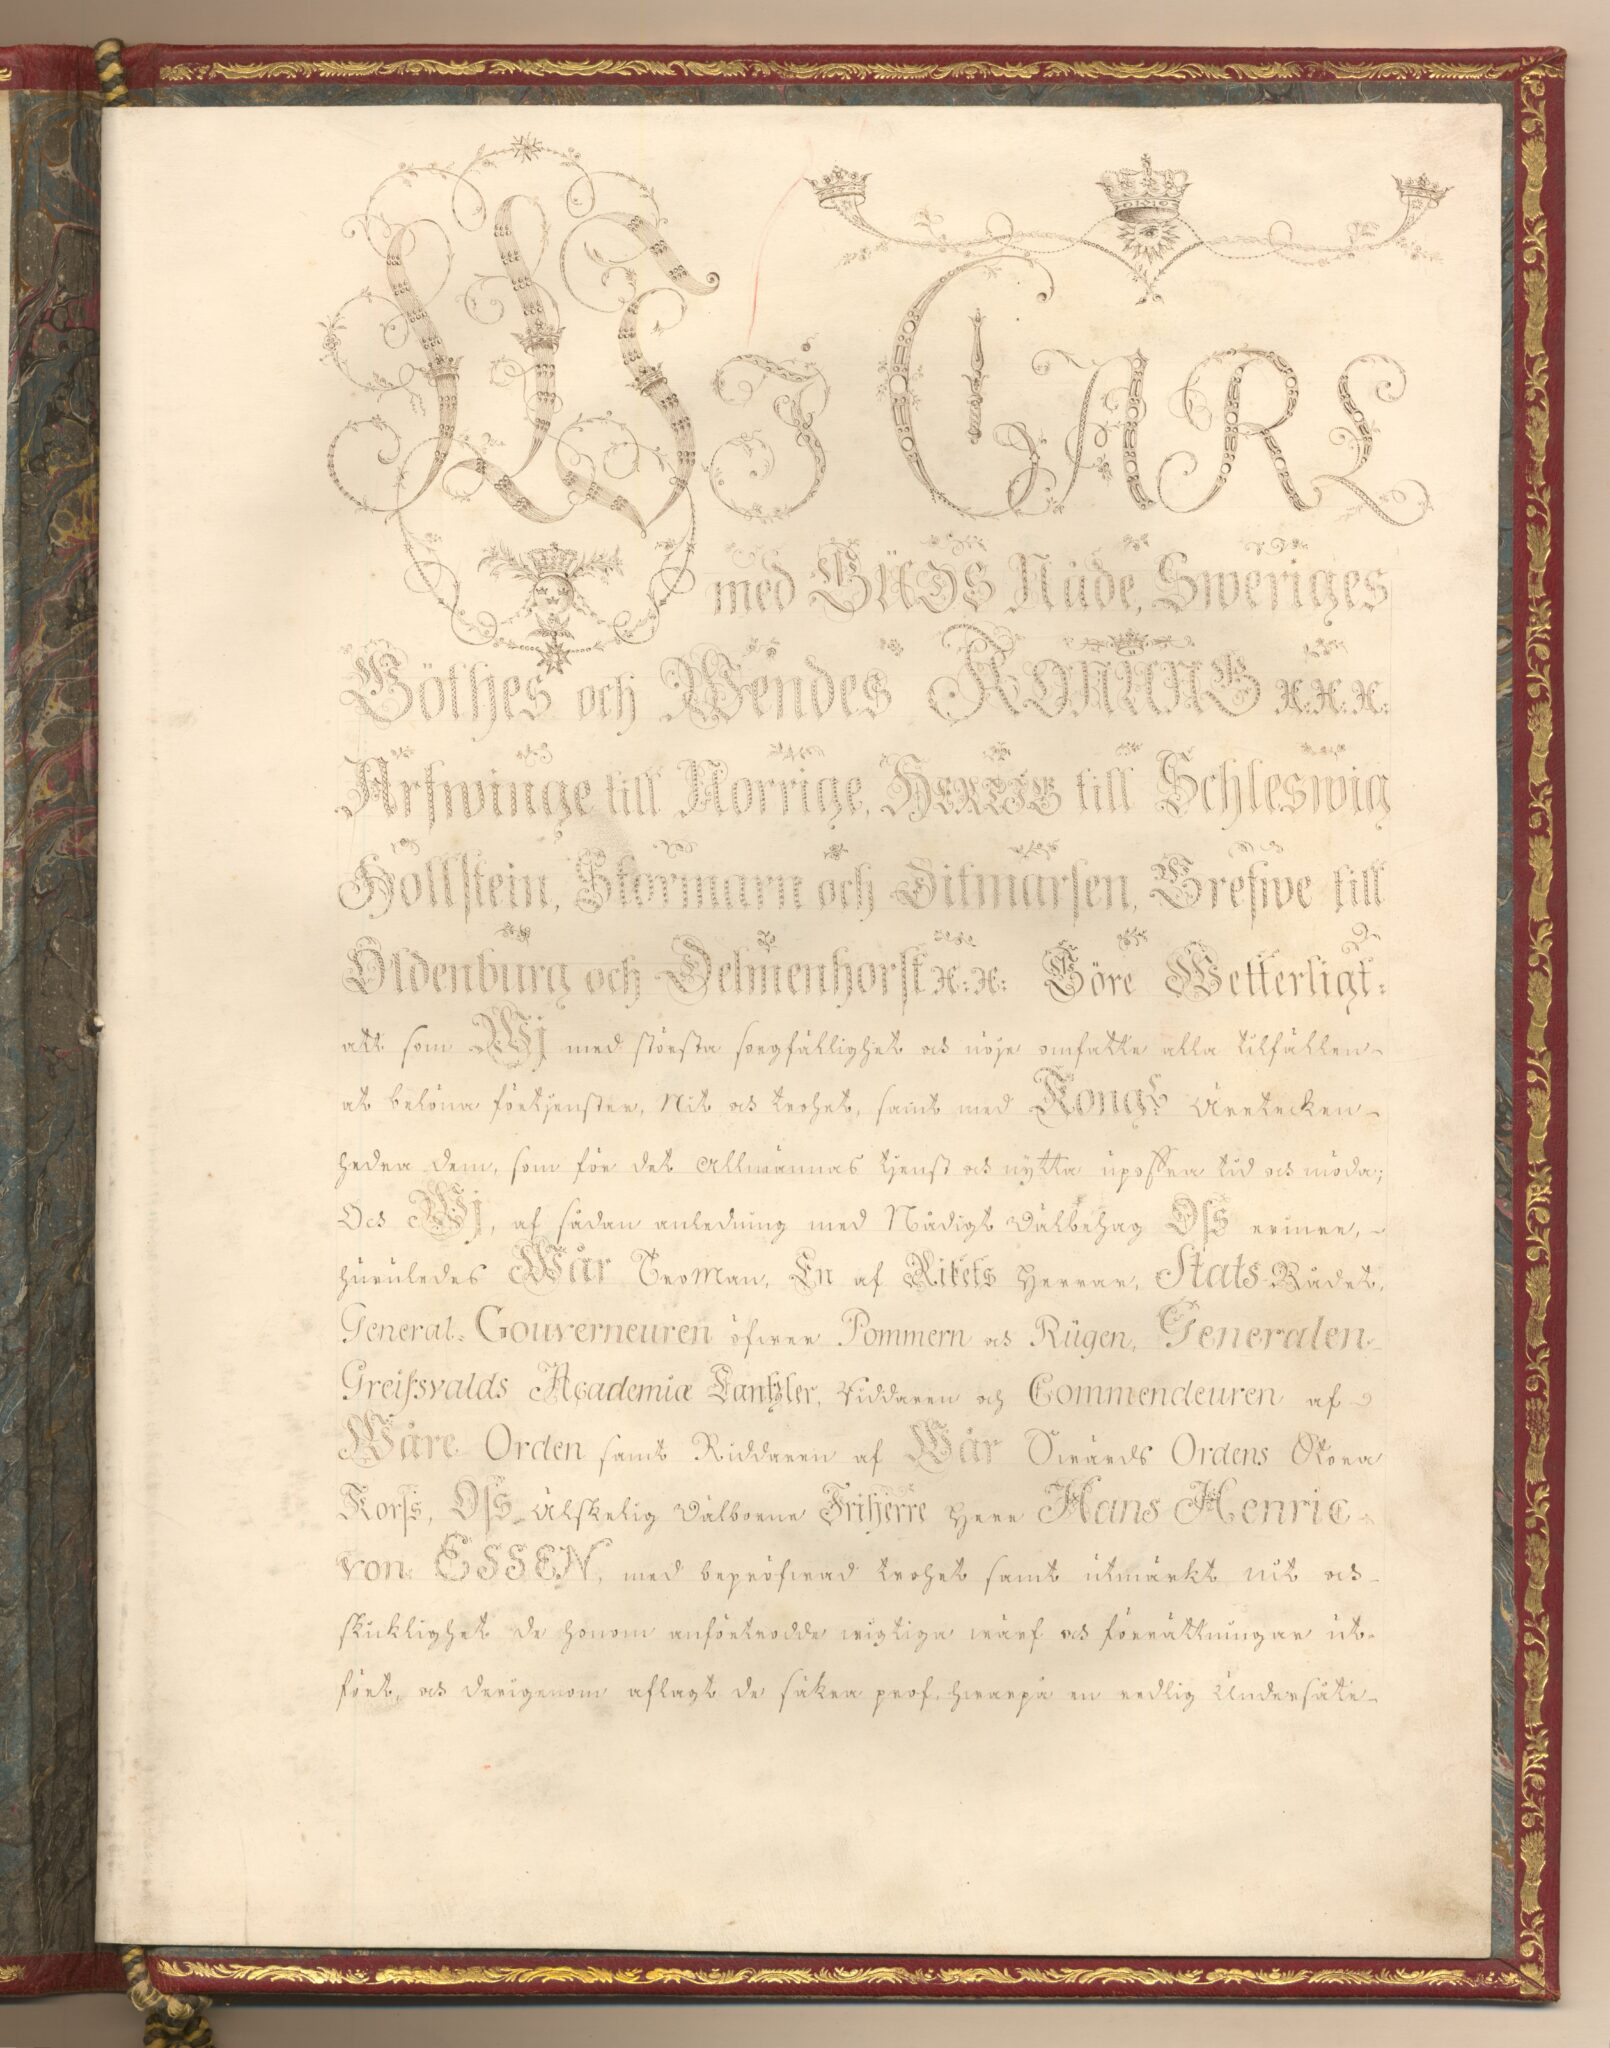 WJ CARL
med GUDS Nåde, Sweriges
Göthes och Wendes KONUNG &c. &c. &c.
Arfwinge till Norrige, HERTIG till Schleswig
Hollstein, Stormarn och Ditmarsen, Grefwe till
Oldenburg och Delmenhorst &c. &c. Göre Wetterligt:
att som Wj med största sorgfällighet och nöje omfatte alla tilfällen
at belöna förtjenster, Nit och trohet, samt med Kongl. Äretecken
hedra dem, som för det Allmännas tjenst och nytta upoffra tid och möda;
Och Wj, af sådan anledning med Nådigt Välbehag Oss erinre,
huruledes Wår Troman, En af Rikets Herrar, Stats-Rådet,
General-Gouverneuren öfwer Pommern och Rügen, Generalen
Greifsvalds Academiæ Cantzler, Riddaren och Commendeuren af
Wåre Orden samt Riddaren af Wår Swärds Ordens Stora
Korss, Oss Älskelig Välborne Friherre Herr Hans Henric
von ESSEN, med bepröfwad trohet samt utmärkt nit och
skicklighet de honom anförtrodde wigtiga wärf och förrättningar ut-
fört, och derigenom aflagt de säkra prof, hwarpå en redlig Undersåte